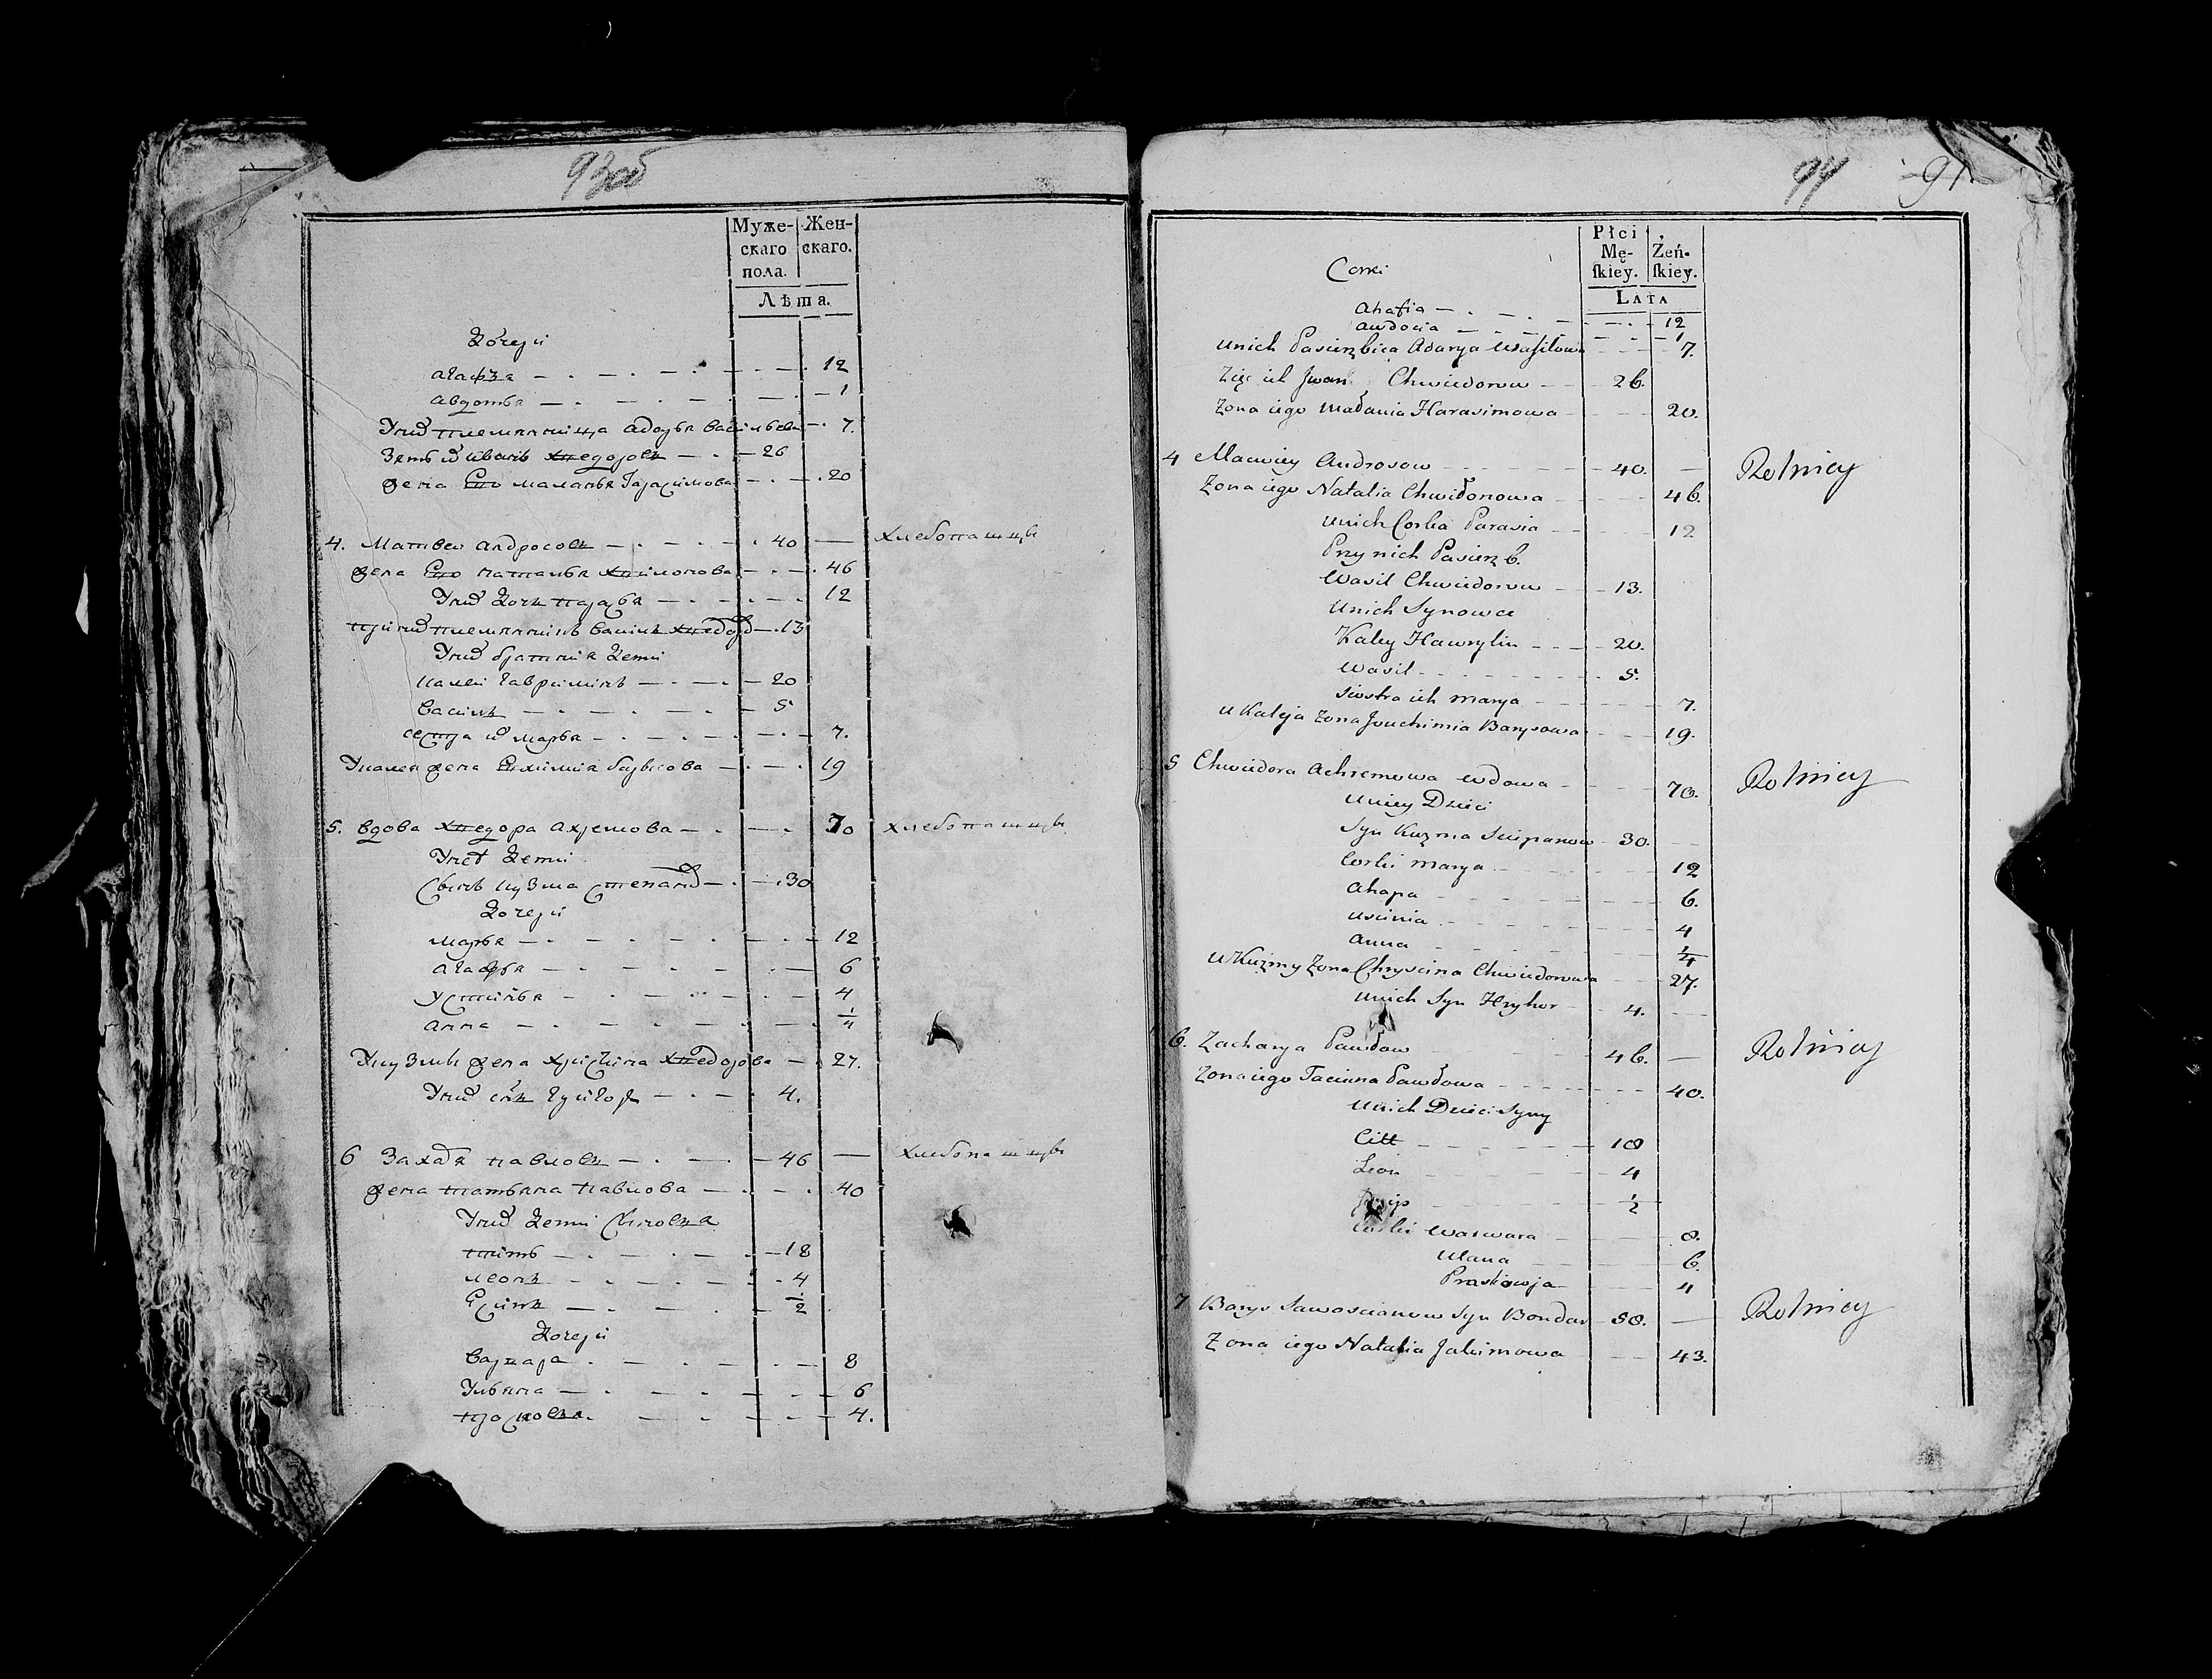 93об
Муже-
скаго
пола.
Жен-
скаго.
Лѣта.
Дочери
Агафья 12
Авдотья 1
У них племянница Адарья Васильева 7.
Зять их Иванъ Хведоровъ 26
Жена Его Маланья Гарасимова 20
4. Матвей Андросовъ 40 — хлебопашцы
Жена Его Наталья Хвилонова 46
У них дочь Парасья 12
При них племянникъ Василь Хведоров 13
У них братнія дети
Калей Гаврилинъ 20
Василь 5
Сестра их Марья 7.
У Калея жена Евхимия Барысова 19
5. Вдова Хведора Ахремова 70 хлебопашцы
У ней дети
Сынъ Кузма Степанов 30
Дочери
Марья 12
Агафья 6
Устинья 4
Анна 1/4
У Кузмы жена Христина Хведорова 27.
У них сынъ Григоръ 4.
6 Захаря Павловъ 46 — хлебопашцы
Жена Татьяна Павлова 40
У них дети Сыновья
Титъ 18
Леонъ 4
Есипъ 1/2
Дочери
Варвара 8
Ульяна 6
Просковья 4.
94 91
Płci
Mę-
ſkiey.
Żeń-
ſkiey.
LATA
Corki
Ahafia 12
Awdocia 1
Unich Pasierzbica Adarya Wasilowa 7.
Zięć ich Jwan Chwiedorow 26.
Zona iego Małania Harasimowa 20.
4 Maciwiey Androsow 40. — Rolnicy
Zona iego Natalia Chwiłonowa 46.
Unich Corka Parasia 12
Przy nich Pasierzb.
Wasil Chwiedorow 13.
Unich Synowce
Kaley Hawrylin 20.
Wasil 5.
Siostra ich Marya 7.
U Kaleja Zona Jouchimia Barysowa 19.
5 Chwiedora Achremowa wdowa 70. Rolnicy
Uniey Dzieci
Syn Kuzma Sciepanow 30.
Corki Marya 12
Ahapa 6.
Uscinia 4
Anna 1/4
U Kuzmy Zona Chryscina Chwiedorowa 27.
Unich Syn Hryhor 4.
6. Zacharya Pawłow 46. — Rolnicy
Zona iego Taciana Pawłowa 40.
Unich Dzieci Syny
Citt 18
Leon 4
1/2
Corki Warwara 8.
Ulana 6.
Praskowja 4
7 Barys Sawoscianow Syn Bondar 58. — Rolnicy
Zona iego Natalia Jakimowa 43.